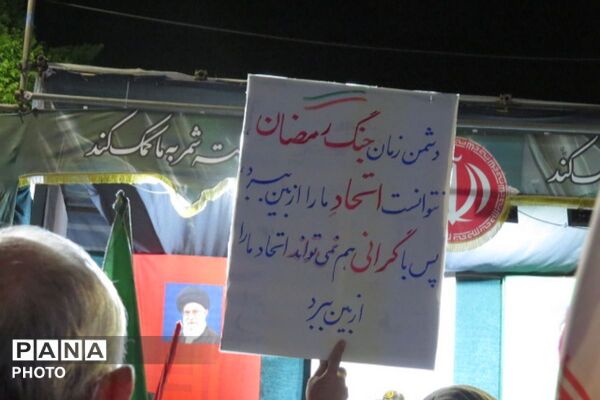 دشمن زمان جنگ رمضان
نتوانست اتحادِ ما را از بین ببرد
پس با گرانی هم نمی‌تواند اتحاد ما را
از بین ببرد
شمر به ما کمک کند
کند
PANA
PHOTO